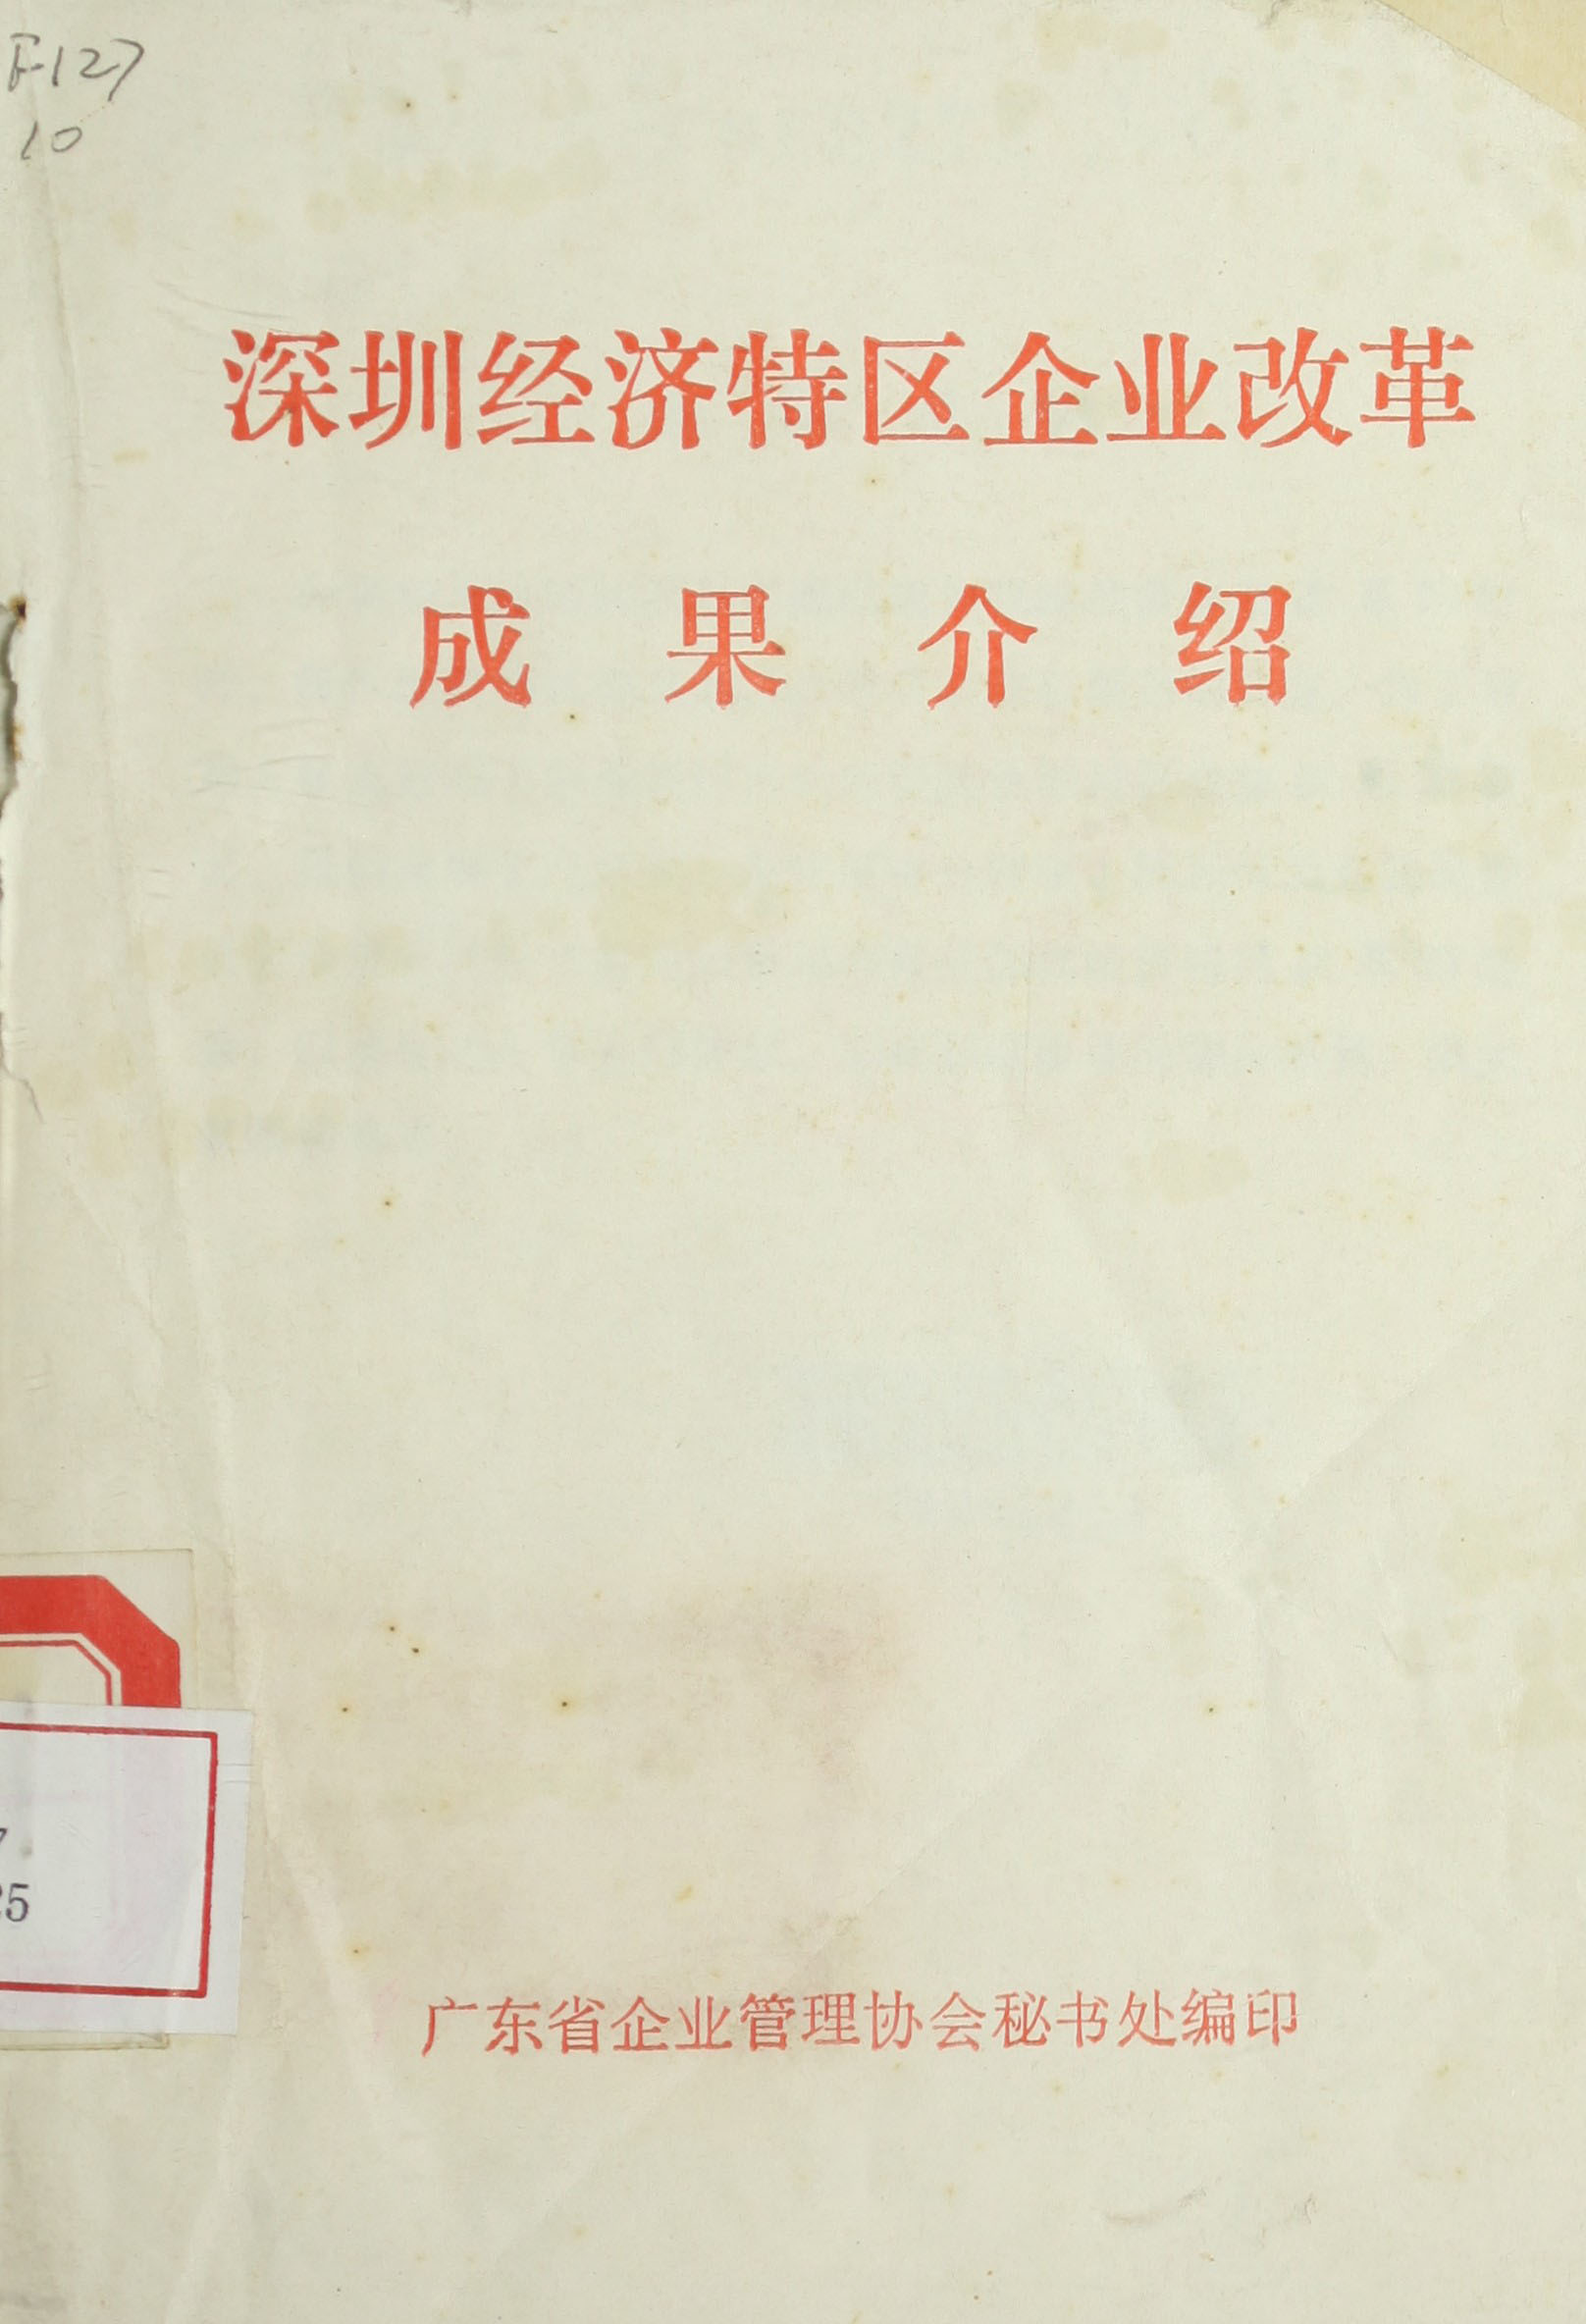 F127
10
深圳经济特区企业改革
成果介绍
25
广东省企业管理协会秘书处编印